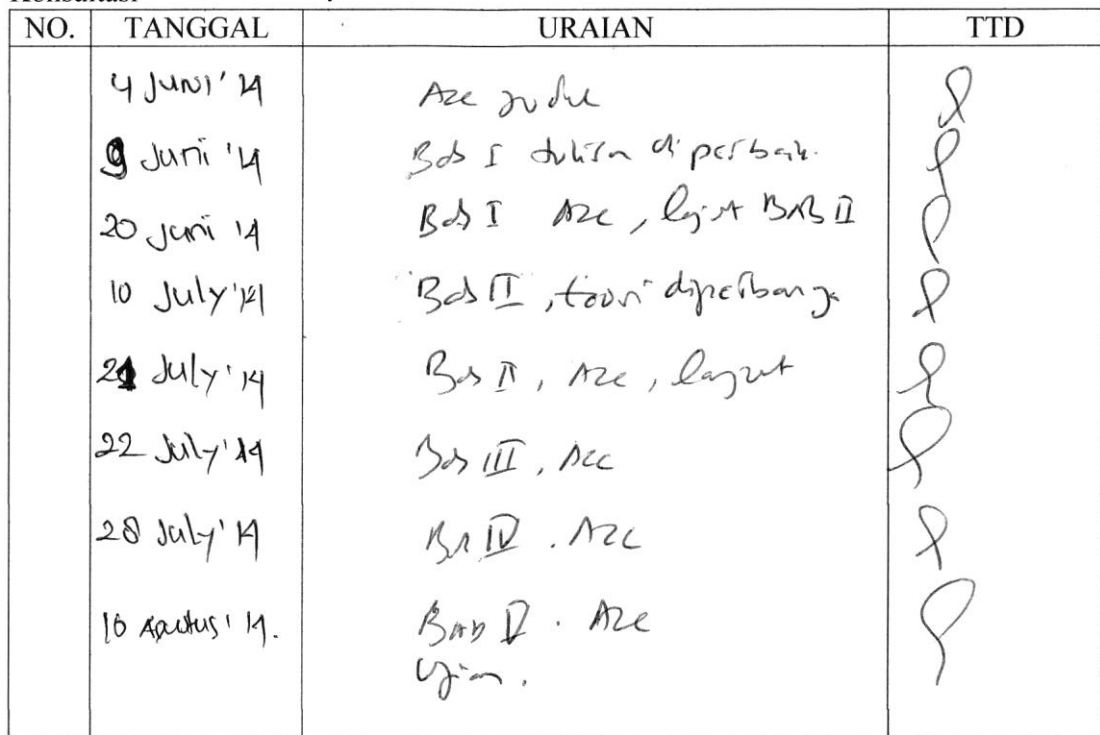 Konsultasi
NO. TANGGAL URAIAN TTD
4 Juni '14 Acc Judul
9 Juni '14 Bab I tulisan diperbaik.
20 Juni '14 Bab I Acc, lanjut BAB II
10 July '14 Bab II, teori
21 July '14 Bab II, Acc, lanjut
22 July '14 Bab III, Acc
28 July '14 Bab IV. Acc
Agustus '14. Bab V. Acc
Ujian.